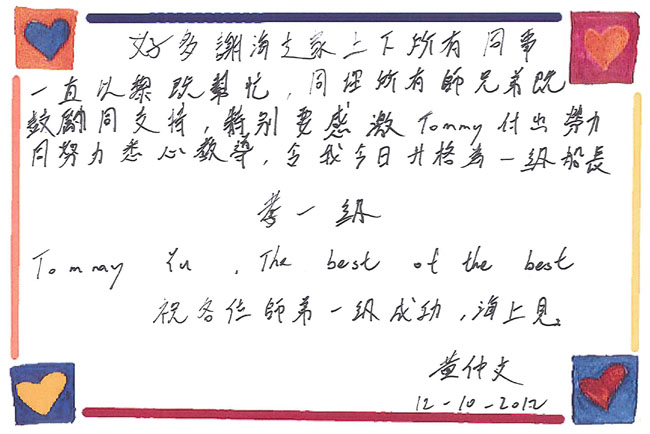 好多謝海之家上下所有同事
一直以黎既幫忙，同埋所有師兄弟既
鼓勵同支持，特別要感激Tommy付出勞力
同努力悉心教導，令我今日升格為一級船長
一級
Tommay Yu , The best of the best
祝各位師弟一級成功，海上見。
黃仲文
12-10-2012